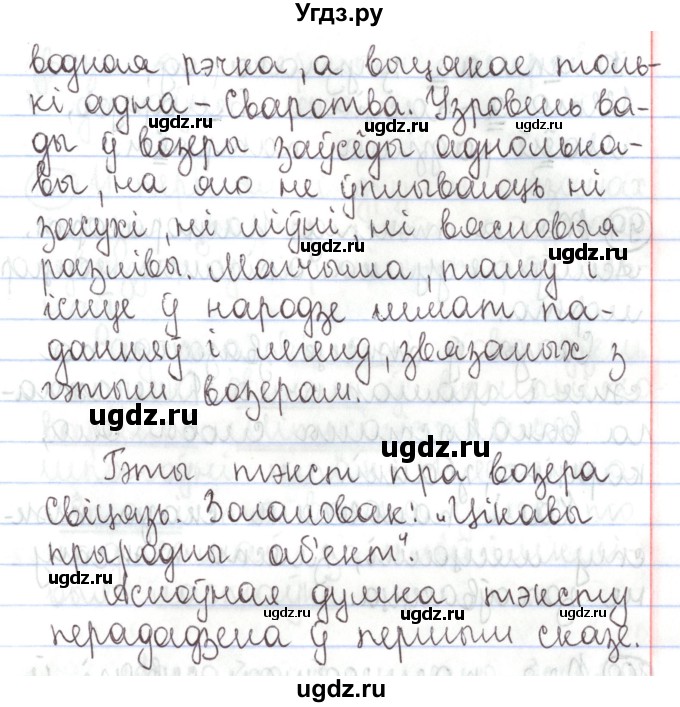 Угдз.ру
водная рэчка, а выцякае толь-
кі адна – Сваротва. Узровень ва-
ды ў возеры заўсёды аднолька-
вы, на яго не ўплываюць ні
засухі, ні ліўні, ні вясновыя
разлівы. Магчыма, таму і
існуе ў народзе шмат па-
данняў і легенд, звязаных з
гэтым возерам.
Гэты тэкст пра возера
Свіцязь. Загаловак: „Цікавы
прыродны аб'ект".
Асноўная думка тэксту
перададзена ў першым сказе.
ugdz.ru